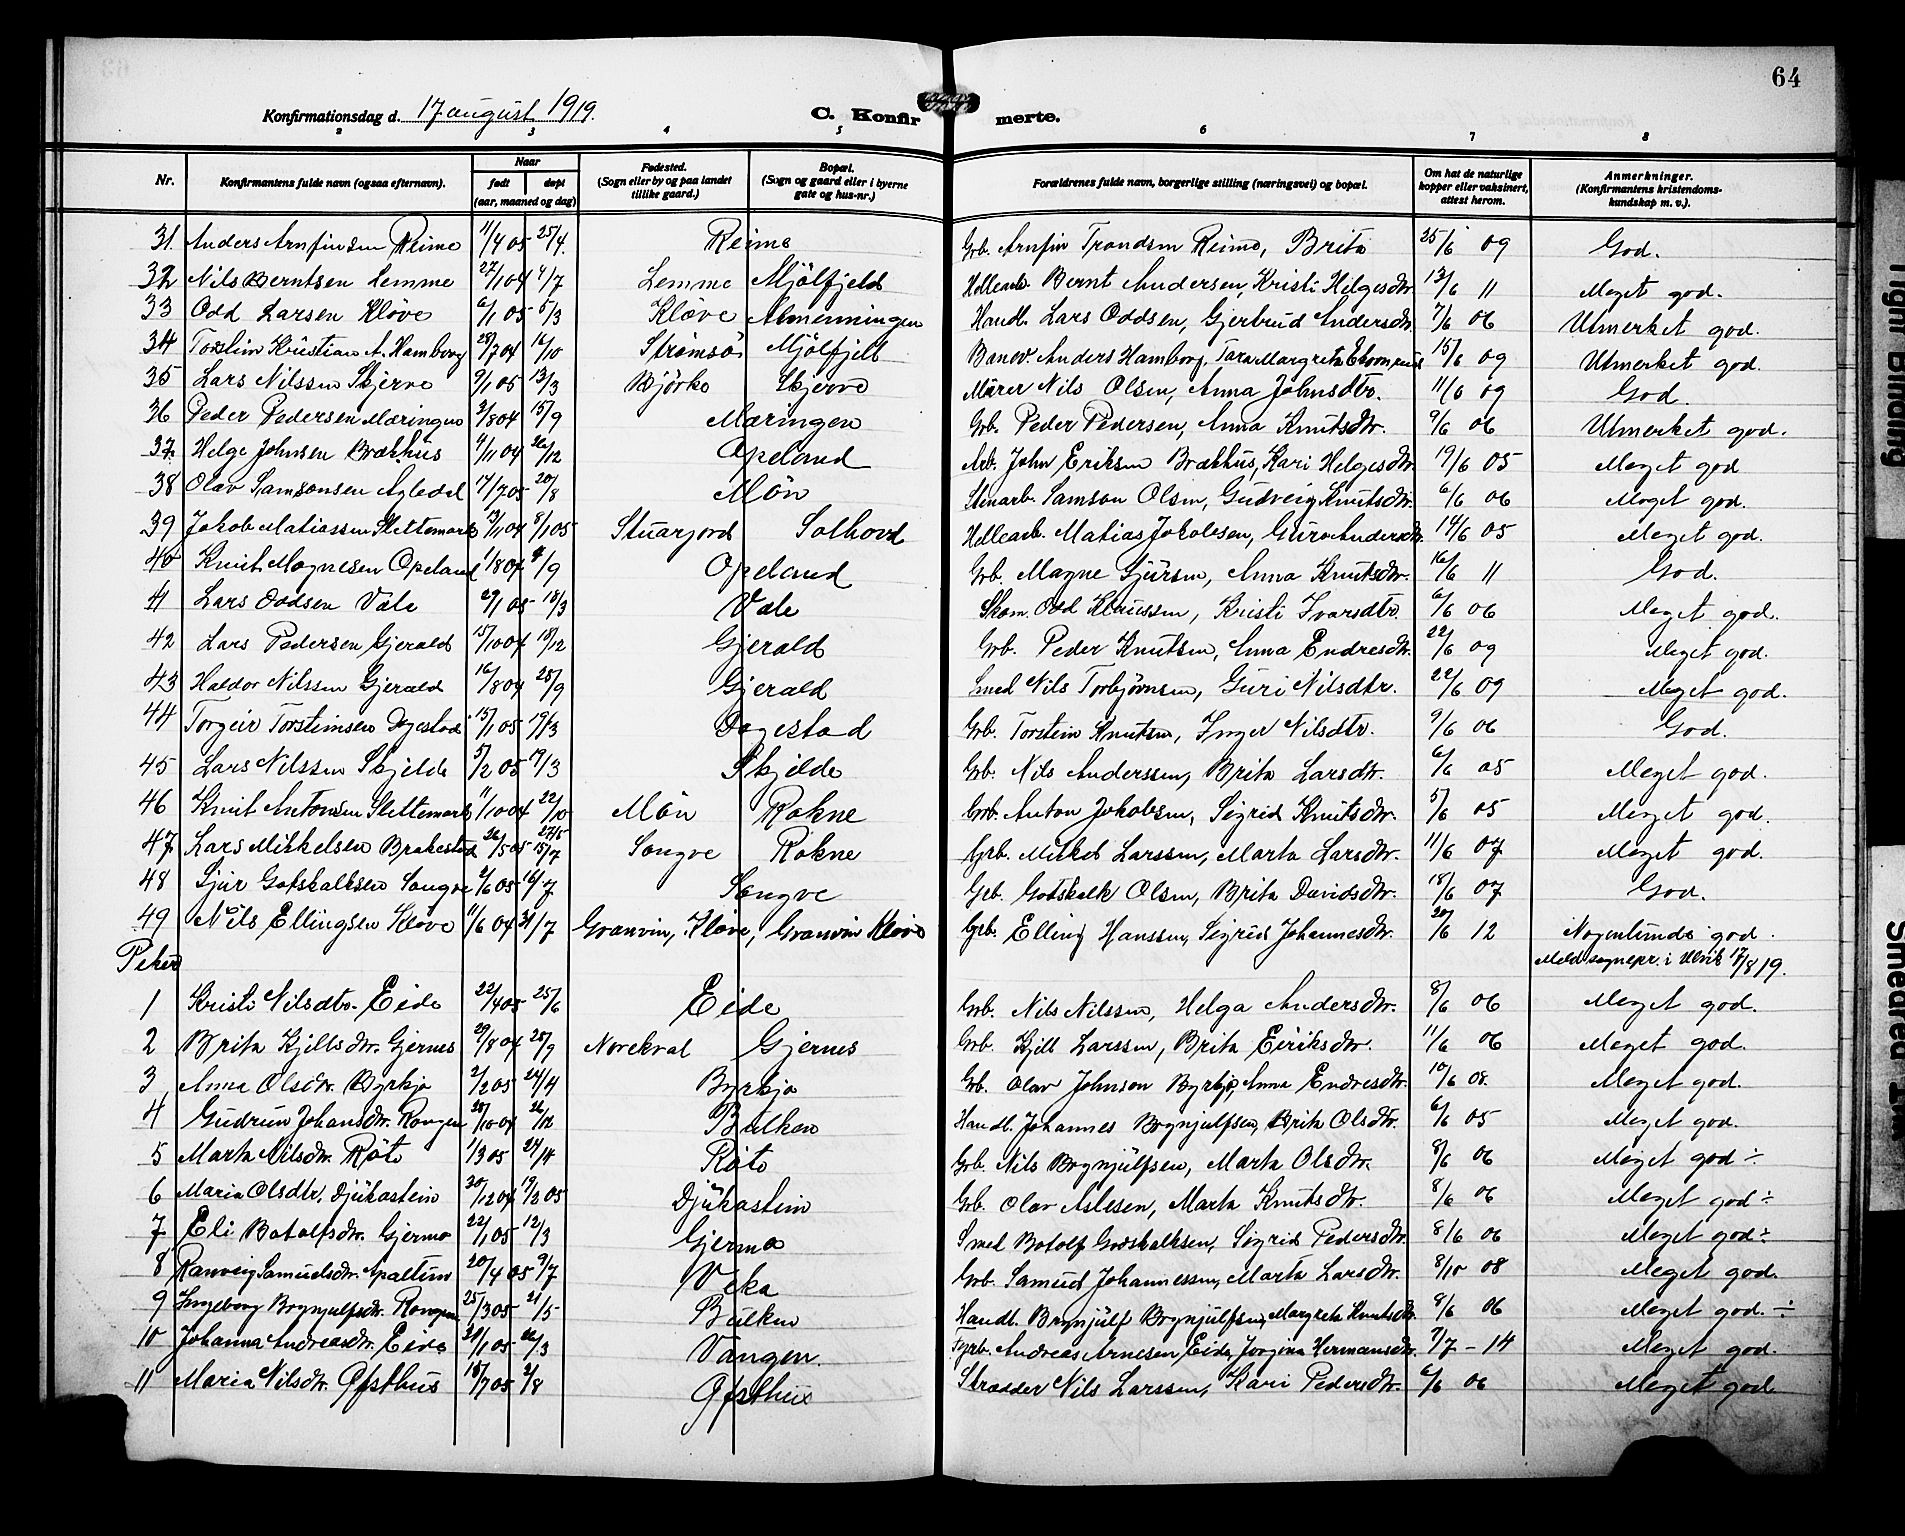 64
Konfirmationsdag d. 17 august 1919.
C. Konfirmerte.
2 3 4 5 6 7 8
Nr. Konfirmantens fulde navn (ogsaa efternavn). Naar født døpt (aar, maaned og dag) Fødested. (Sogn eller by og paa landet tillike gaard.) Bopæl. (Sogn og gaard eller i byerne gate og hus-nr.) Forældrenes fulde navn, borgerlige stilling (næringsvei) og bopæl. Om hat de naturlige kopper eller vaksinert, attest herom. Anmerkninger. (Konfirmantens kristendomskundskap m. v.).
31 Anders Arnfinsen Reime 11/4 05 25/4. Reime Grb. Arnfin Trondsen Reime, Brita 25/6 09 God.
32 Nils Berntsen Lemme 27/1 04 4/7 Lemme Mjölfjeld Hellearb. Bernt Andersen, Kristi Helgesdtr. 13/6 11 Meget god.
33 Odd Larsen Kløve 6/1 05 5/3 Kløve Almenningen Handl. Lars Oddsen, Gjertrud Andersdtr. 7/6 06 Utmerket god.
34 Torstin Kristian A. Hamborg 28/7 04 16/10 Strømsö Mjölfjell Banev. Anders Hamborg, Tara Margreta 15/6 09 Utmerket god.
35 Lars Nilssen Skjerve 9/1 05 13/3 Björke Skjerve Murer Nils Olsen, Anna Johnsdtr. 11/6 09 God.
36 Peder Pedersen Mæringen 3/8 04 15/9 Mæringen Grb. Peder Pedersen, Anna Knutsdtr. 9/6 06 Utmerket god.
37. Helge Johnsen Brækhus 4/11 04 26/12 Opeland Arb. John Eriksen Brækhus, Kari Helgesdtr. 19/6 05 Meget god
38 Olav Samsonsen Agledal 17/7 05 20/8 Mön Stenarb. Samson Olsen, Gudveig Knutsdtr. 6/6 06 Meget god.
39 Jakob Matiassen Slettemark 13/11 04 8/1 05 Stuarjord Solhovd Hellearb. Matias Jakobsen, Guro Andersdtr. 14/6 05 Meget god.
40 Knut Magnesen Opeland 1/8 04 4/9 Opeland Grb. Magne Sjursen, Anna Knutsdtr. 16/6 11 God.
41 Lars Oddsen Væle 29/1 05 18/3 Væle Skom. Odd Klaussen, Kristi Ivarsdtr. 6/6 06 Meget god.
42 Lars Pedersen Gjerald 15/10 04 18/12 Gjerald Grb. Peder Knutsen, Anna Endresdtr. 22/6 09 Meget god.
43 Haldor Nilssen Gjerald 16/8 04 25/9 Gjerald Smed Nils Torbjørnsen, Guri Nilsdtr. 22/6 09 Meget god.
44 Torgeir Torsteinsen Dagestad 15/1 05 19/3 Dagestad Grb. Torstein Knutsen, Inger Nilsdtr. 9/6 06 God.
45 Lars Nilssen Skjelde 5/2 05 19/3 Skjelde Grb. Nils Anderssen, Brita Larsdtr. 6/6 05 Meget god.
46 Knut Antonsen Slettemark 11/10 04 22/10 Mön Rokne Grb. Anton Jakobsen, Sigrid Knutsdtr. 5/6 05 Meget god.
47 Lars Mikkelsen Brakestad 26/5 05 15/7 Songve Rokne Grb. Mikkel Larssen, Marta Larsdtr. 11/6 07 Meget god.
48 Sjur Gotskalksen Songve 2/6 05 16/7 Songve Grb. Gotskalk Olsen, Brita Davidsdtr. 18/6 07 God.
49 Nils Ellingsen Kløve 11/6 04 31/7 Granvin, Kløve, Granvin Kløve Grb. Elling Hanssen, Sigrid Johannesdtr. 20/6 12 Nogenlunde god.
Piker Meld. sognepr. i Ulvik 17/8 19.
1 Kristi Nilsdtr. Eide 22/4 05 25/6 Eide Grb. Nils Nilssen, Helga Andersdtr. 8/6 06 Meget god.
2 Brita Kjellsdtr. Gjernes 29/8 04 25/9 Norekval Gjernes Grb. Kjell Larssen, Brita Eiriksdtr. 11/6 06 Meget god.
3 Anna Olsdtr. Byrkja 2/2 05 24/4 Byrkja Grb. Olav Johnson Byrkja, Anna Endresdtr. 10/6 08. Meget god.
4 Gudrun Johansdtr. Rongen 28/10 04 26/12 Bulken Handl. Johannes Brynjulfsen, Brita Olsdtr. 6/6 05 Meget god.
5 Marta Nilsdtr. Røte 1/3 05 24/4 Røte Grb. Nils Brynjulfsen, Marta Olsdtr. 8/6 06 Meget god ÷
6 Maria Olsdtr. Djukastein 20/12 04 19/2 05 Djukastein Grb. Olav Aslesen, Marta Knutsdtr. 8/6 06 Meget god ÷
7 Eli Botolfsdtr. Gjerme 22/1 05 12/3 Gjerme Smed Botolf Godskalksen, Sigrid Pedersdtr. 8/6 06 Meget god ÷
8 Ranveig Samuelsdtr. Apaltun 20/4 05 9/7 Veka Grb. Samuel Johannessen, Marta Larsdtr. 8/10 08 Meget god.
9 Ingeborg Brynjulfsdtr. Rongen 25/3 05 21/5 Bulken Handl. Brynjulf Brynjulfsen, Margreta Knutsdtr. 8/6 06 Meget god. ÷
10 Johanna Andreasdtr. Eide 29/1 05 26/3 Vangen. Andreas Arnesen Eide, Jorgina Hermansdtr. 7/7 - 14 Meget god.
11 Maria Nilsdtr. Gjøsthus 18/7 05 21/8 Gjøsthus Skrædder Nils Larssen, Kari Pedersdtr. 6/6 06 Meget god